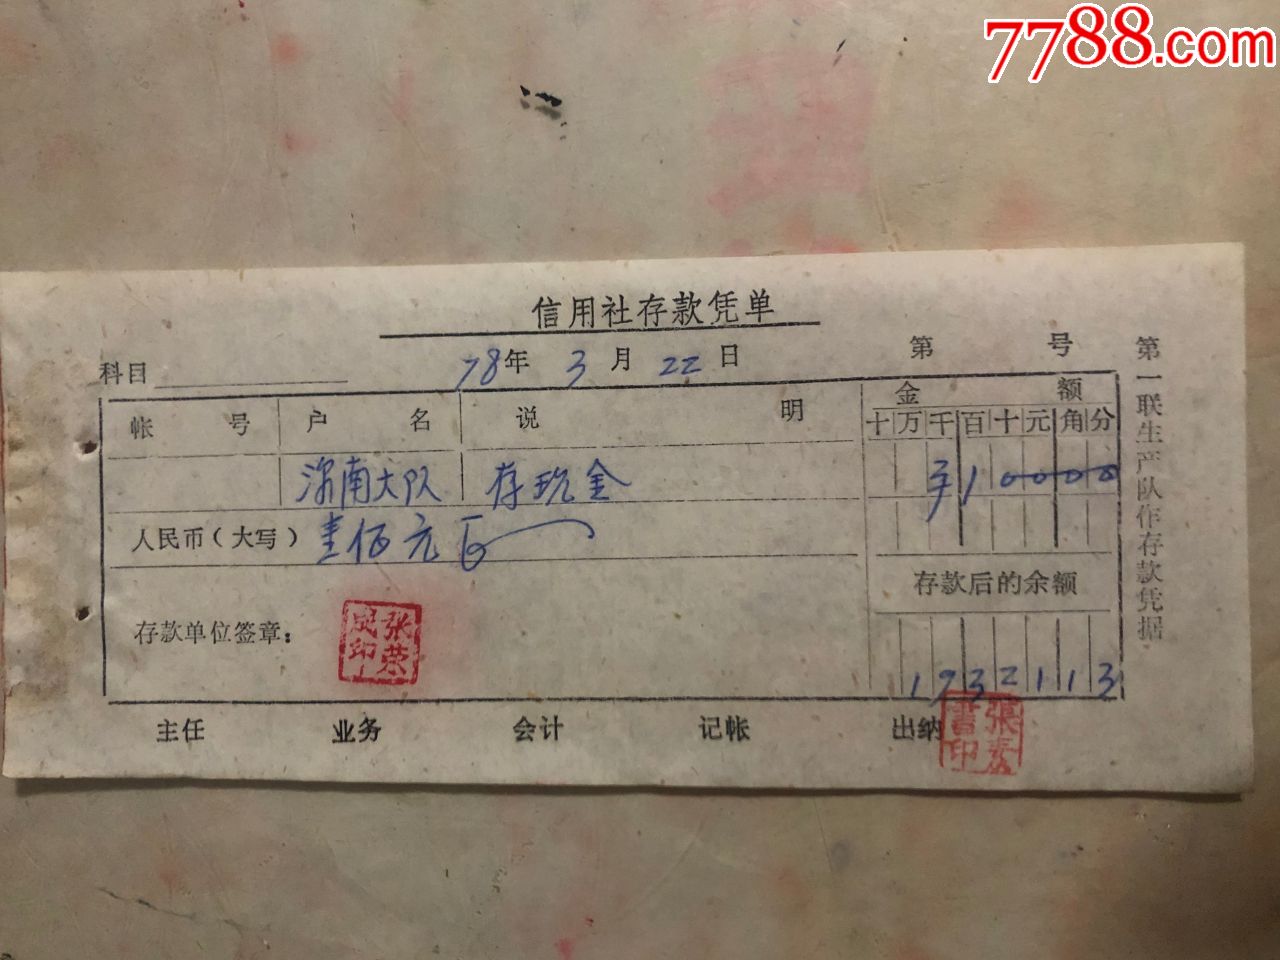 7788.com
信用社存款凭单
科目 78年 3月 22日 第 号
帐号 户名 说明 金额
十万千百十元角分
南大队 存现金 10000
人民币(大写) 壹佰元
存款后的余额
存款单位签章: 张荣成印
1732113
主任 业务 会计 记帐 出纳
张 书印
第一联生产队作存款凭据